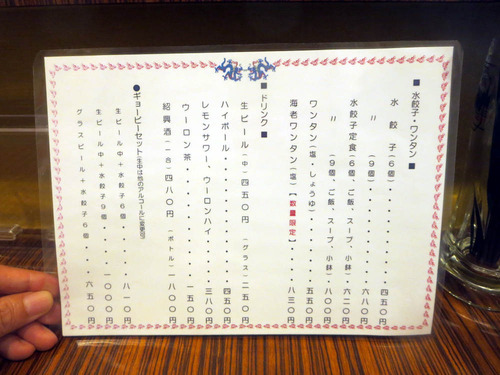 ■水餃子・ワンタン■
水餃子(6個)・・・・・・・・四五〇円
〃(9個)・・・・・・・・六八〇円
水餃子定食(6個、ご飯、スープ、小鉢)・六二〇円
〃(9個、ご飯、スープ、小鉢)・八〇〇円
ワンタン(塩・しょうゆ)・・・・・五五〇円
海老ワンタン(塩)【数量限定】・・・八三〇円
■ドリンク■
生ビール(中)四五〇円(グラス)二五〇円
ハイボール・・・・・・・・四五〇円
レモンサワー、ウーロンハイ・・・・三八〇円
ウーロン茶・・・・・・・・一五〇円
紹興酒(一合)四八〇円(ボトル)一八〇〇円
●ギョービーセット(生中は他のアルコールに変更可)
生ビール中+水餃子6個・・・・八一〇円
生ビール中+水餃子9個・・・一〇〇〇円
グラスビール+水餃子6個・・・六五〇円